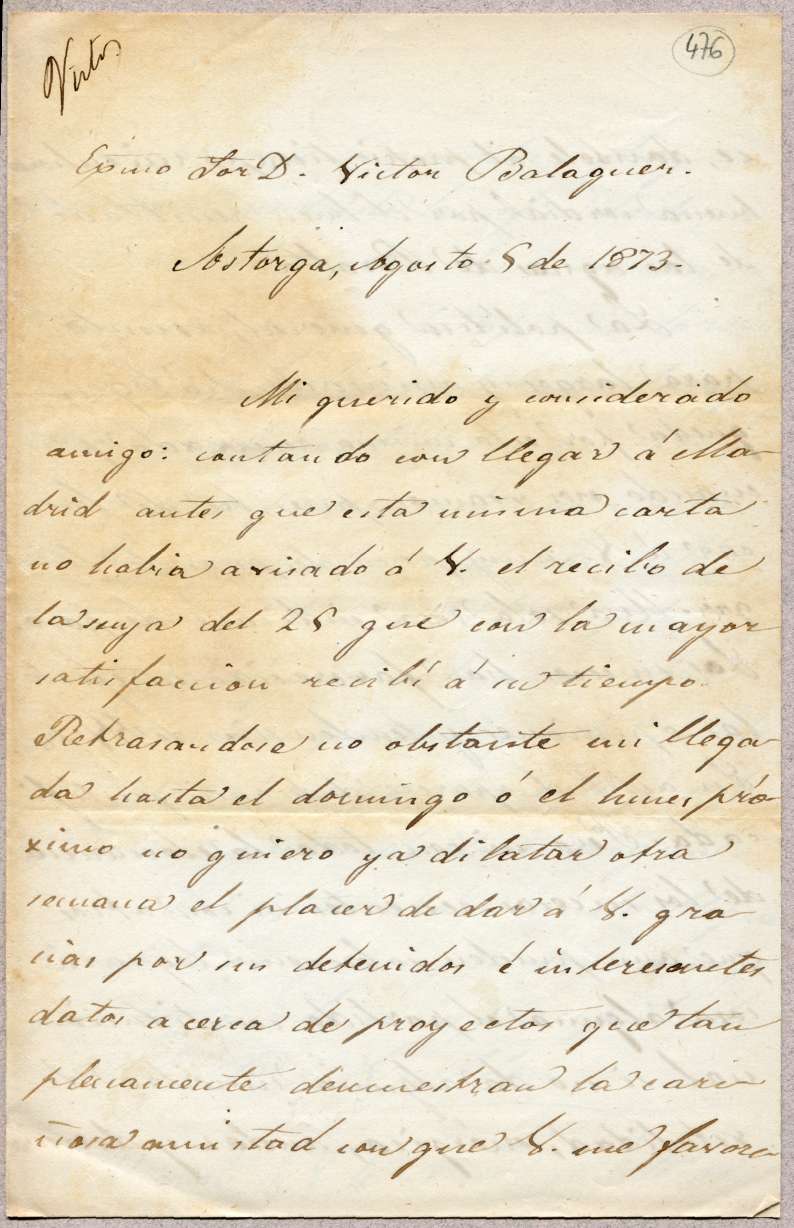 476
Exmo Sor D. Victor Balaguer.
Astorga, Agosto 5 de 1873.
Mi querido y considerado
amigo: contando con llegar á Ma-
drid antes que esta misma carta
no habia avisado á V. el recibo de
la suya del 25 que con la mayor
satisfaccion recibí á su tiempo.
Retrasandose no obstante mi llega-
da hasta el domingo ó el lunes pró-
ximo no quiero ya dilatar otra
semana el placer de dar á V. gra-
cias por sus detenidos é interesantes
datos acerca de proyectos que tan
plenamente demuestran la cari-
ñosa amistad con que V. me favore-